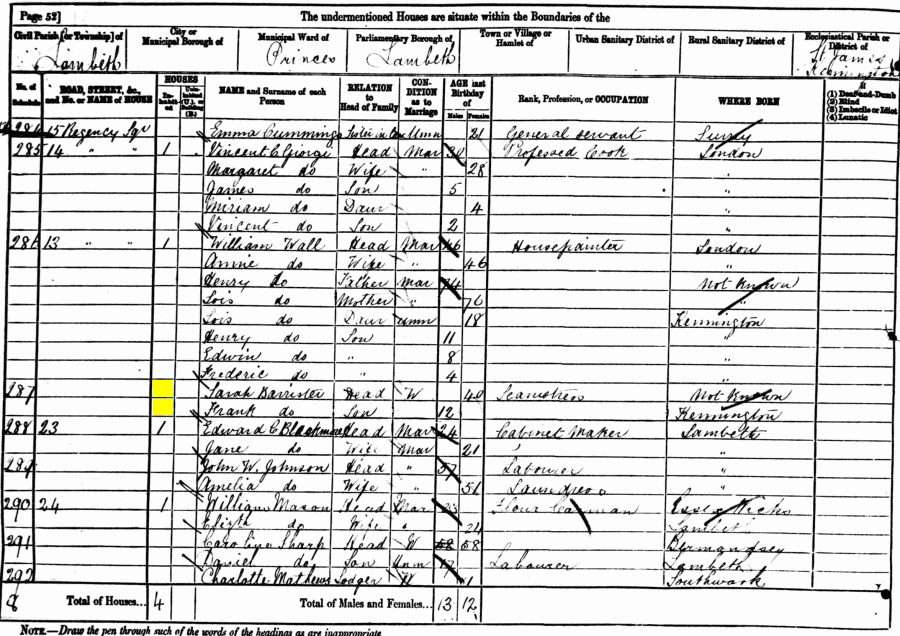 Page 52] The undermentioned Houses are situate within the Boundaries of the
Civil Parish [or Township] of City or Municipal Borough of Municipal Ward of Parliamentary Borough of Town or Village or Hamlet of Urban Sanitary District of Rural Sanitary District of Ecclesiastical Parish or District of
Lambeth Princes Lambeth St James Kennington
No. of Schedule ROAD, STREET, &c., and No. or NAME of HOUSE HOUSES Inhabited Uninhabited (U.), or (B.) NAME and Surname of each Person RELATION to Head of Family CONDITION as to Marriage AGE last Birthday of Males Females Rank, Profession, or OCCUPATION WHERE BORN If (1) Deaf-and-Dumb (2) Blind (3) Imbecile or Idiot (4) Lunatic
284 15 Regency Sqr Emma Cummings Sister in Law Unm 21 General servant Surry
285 14 " " 1 Vincent C Giorgi Head Mar 30 Professed Cook London
Margaret do Wife " 28 "
James do Son 5 "
Miriam do Daur 4 "
Vincent do Son 2 "
286 13 " " 1 William Wall Head Mar 46 Housepainter London
Annie do Wife " 46 "
Henry do Father Mar 74 Not Known
Lois do Mother " 76 "
Lois do Daur Unm 18 Kennington
Henry do Son 11 "
Edwin do " 8 "
Frederic do " 4 "
287 Sarah Barrister Head W 40 Seamstress Not Known
Frank do Son 12 Kennington
288 23 1 Edward C Blackmore Head Mar 24 Cabinet Maker Lambeth
Jane do Wife Mar 21 "
289 John W. Johnson Head " 57 Labourer "
Amelia do Wife " 51 Laundress "
290 24 1 William Mason Head Mar 23 Flour Carman Essex
Elizth do Wife " 24 Lambeth
291 Caroline Sharp Head W 58 58 Bermondsey
Daniel do Son Unm 17 Labourer Lambeth
292 Charlotte Mathews Lodger W Southwark
8 Total of Houses... 4 Total of Males and Females... 13 12
NOTE.—Draw the pen through such of the words of the headings as are inappropriate